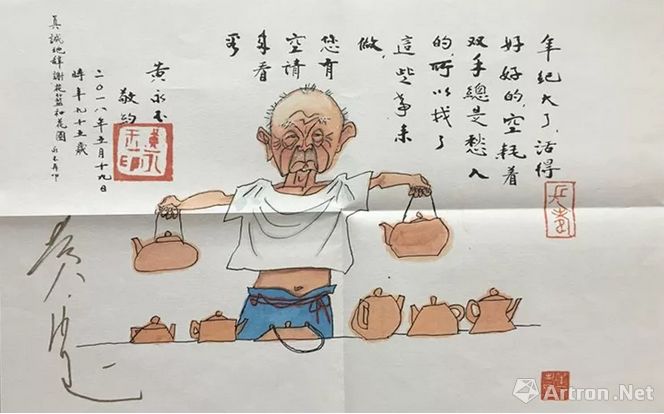 年紀大了,活得
好好的,空耗着
双手總是愁人
的,所以找了
這些事来
做。
您有
空请
来看
看
黄永玉
敬約
二〇一八年五月十九日
時年九十五歲
真誠地辞謝花籃和花圈
黄永玉印
Artron.Net